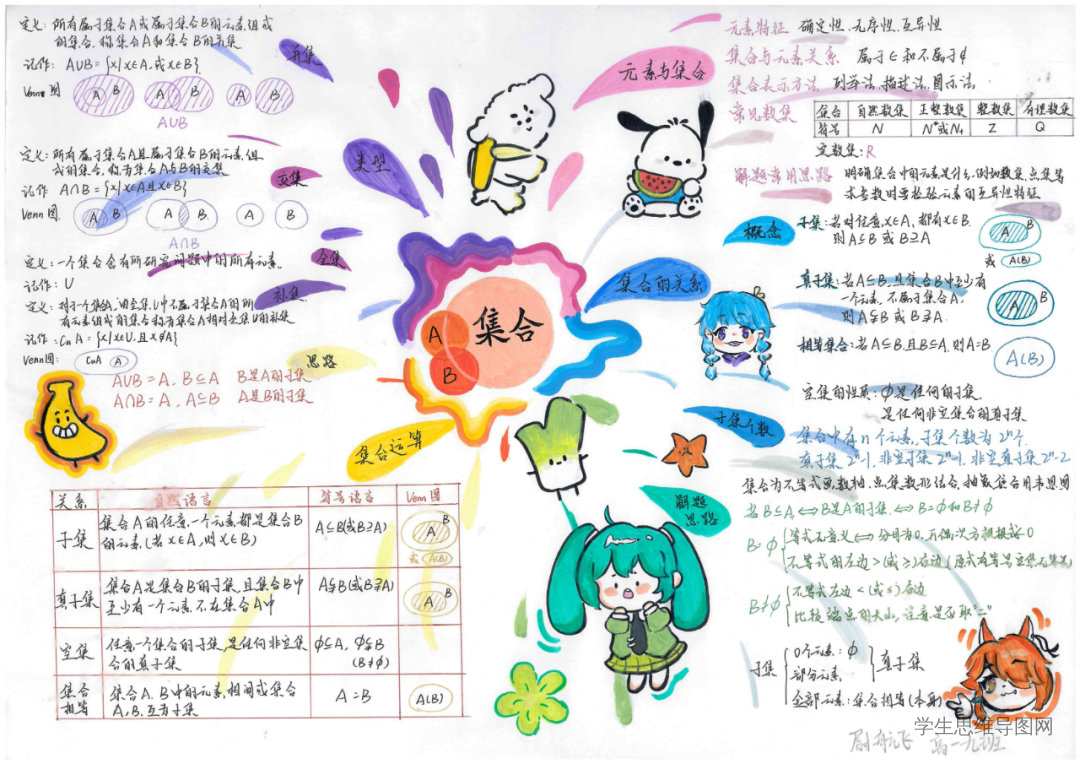 定义:所有属于集合A或属于集合B的元素组成
的集合,称集合A和集合B的并集
记作: A∪B={x|x∈A,或x∈B}
Venn图
A B A B A B
A∪B
并集
定义:所有属于集合A且属于集合B的元素,组
成的集合,称为集合A与B的交集
记作 A∩B={x|x∈A且x∈B}
Venn图
A B A B A B
A∩B
交集
类型
定义:一个集合含有所研究问题中的所有元素。
记作: U
全集
定义:对于一个集合A,由全集U中不属于集合A的所
有元素组成的集合称为集合A相对全集U的补集
记作:CuA={x|x∈U,且x∉A}
Venn图:
CuA A
补集
思路
A∪B=A, B⊆A B是A的子集
A∩B=A, A⊆B A是B的子集
集合运算
集合
A
B
元素与集合
元素特征 确定性、无序性、互异性
集合与元素关系 属于∈和不属于∉
集合表示方法 列举法、描述法、图示法、
常见数集
集合 自然数集 正整数集 整数集 有理数集
符号 N N*或N+ Z Q
实数集:R
解题常用思路 明确集合中的元素是什么,例如数集、点集等
求参数时要检验元素的互异性特征
集合的关系
概念
子集:若对任意x∈A,都有x∈B.
则A⊆B 或 B⊇A
A B
或 A(B)
真子集:若A⊆B,且集合B中至少有
一个元素,不属于集合A,
则A⫋B 或 B⫌A.
A B
相等集合:若A⊆B,且B⊆A,则A=B
A(B)
空集的性质:∅是任何的子集
是任何非空集合的真子集
子集个数
集合中有n个元素,子集个数为2ⁿ个.
真子集2ⁿ-1,非空子集2ⁿ-1,非空真子集2ⁿ-2
解题
思路
集合为不等式画数轴,点集数形结合,抽象集合用韦恩图
若B⊆A,⇔B是A的子集⇔B=∅和B≠∅
B=∅
不等式的左边>(或≥)右边
B≠∅
不等式左边<(或≤)右边
比较端点的大小,注意是否取"="
子集
0个元素:∅
部分元素:
真子集
全部元素:集合相等(本身)
关系 自然语言 符号语言 Venn图
子集
集合A的任意一个元素都是集合B
的元素(若x∈A,则x∈B)
A⊆B(或B⊇A)
A B
或 A(B)
真子集
集合A是集合B的子集,且集合B中
至少有一个元素不在集合A中
A⫋B(或B⫌A)
A B
空集
任意一个集合的子集,是任何非空集
合的真子集
∅⊆A, ∅⫋B
(B≠∅)
集合
相等
集合A、B中的元素相同或集合
A,B,互为子集
A=B
A(B)
学生思维导图网
高一九班